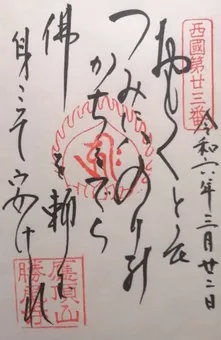 西國第廿三番
令和六年三月廿二日
おもくとも
つみにはのりの
かちをてら
佛を頼む
身こそやすけれ
應頂山
勝尾寺